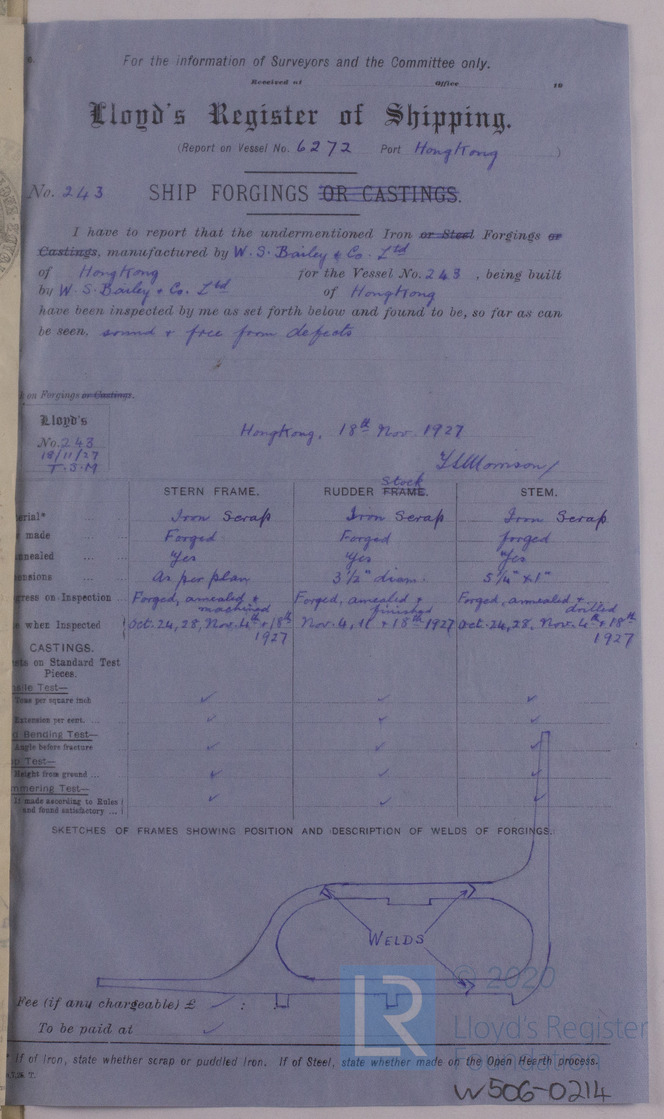 For the information of Surveyors and the Committee only.
Received at Office 19
Lloyd's Register of Shipping.
(Report on Vessel No. 6272 Port HongKong )
No. 243 SHIP FORGINGS OR CASTINGS.
I have to report that the undermentioned Iron or Steel Forgings or
Castings, manufactured by W. S. Bailey & Co. Ltd
of HongKong for the Vessel No. 243 , being built
by W. S. Bailey & Co. Ltd of HongKong
have been inspected by me as set forth below and found to be, so far as can
be seen, sound & free from defects
on Forgings or Castings.
Lloyd's
No. 243
18/11/27
T.S.M
HongKong, 18th Nov. 1927
Morrison
Stock
STERN FRAME. RUDDER FRAME. STEM.
erial* Iron Scrap Iron Scrap Iron Scrap
made Forged Forged forged
nnealed Yes Yes Yes
ensions As per plan 3½" diam. 5¼" x 1"
gress on Inspection Forged, annealed & machined Forged, annealed & finished Forged, annealed & drilled
when Inspected Oct. 24, 28, Nov. 4th & 18th 1927 Nov. 4, 11 & 18th 1927 Oct. 24, 28, Nov. 4th & 18th 1927
CASTINGS.
on Standard Test
Pieces.
sile Test—
Tons per square inch
Extension per cent.
Bending Test—
Angle before fracture
Test—
Height from ground
mmering Test—
If made according to Rules
and found satisfactory
SKETCHES OF FRAMES SHOWING POSITION AND DESCRIPTION OF WELDS OF FORGINGS.
WELDS
Fee (if any chargeable) £ :
To be paid at
* If of Iron, state whether scrap or puddled iron. If of Steel, state whether made on the Open Hearth process.
LR
© 2020
Lloyd's Register
Foundation
W506-0214